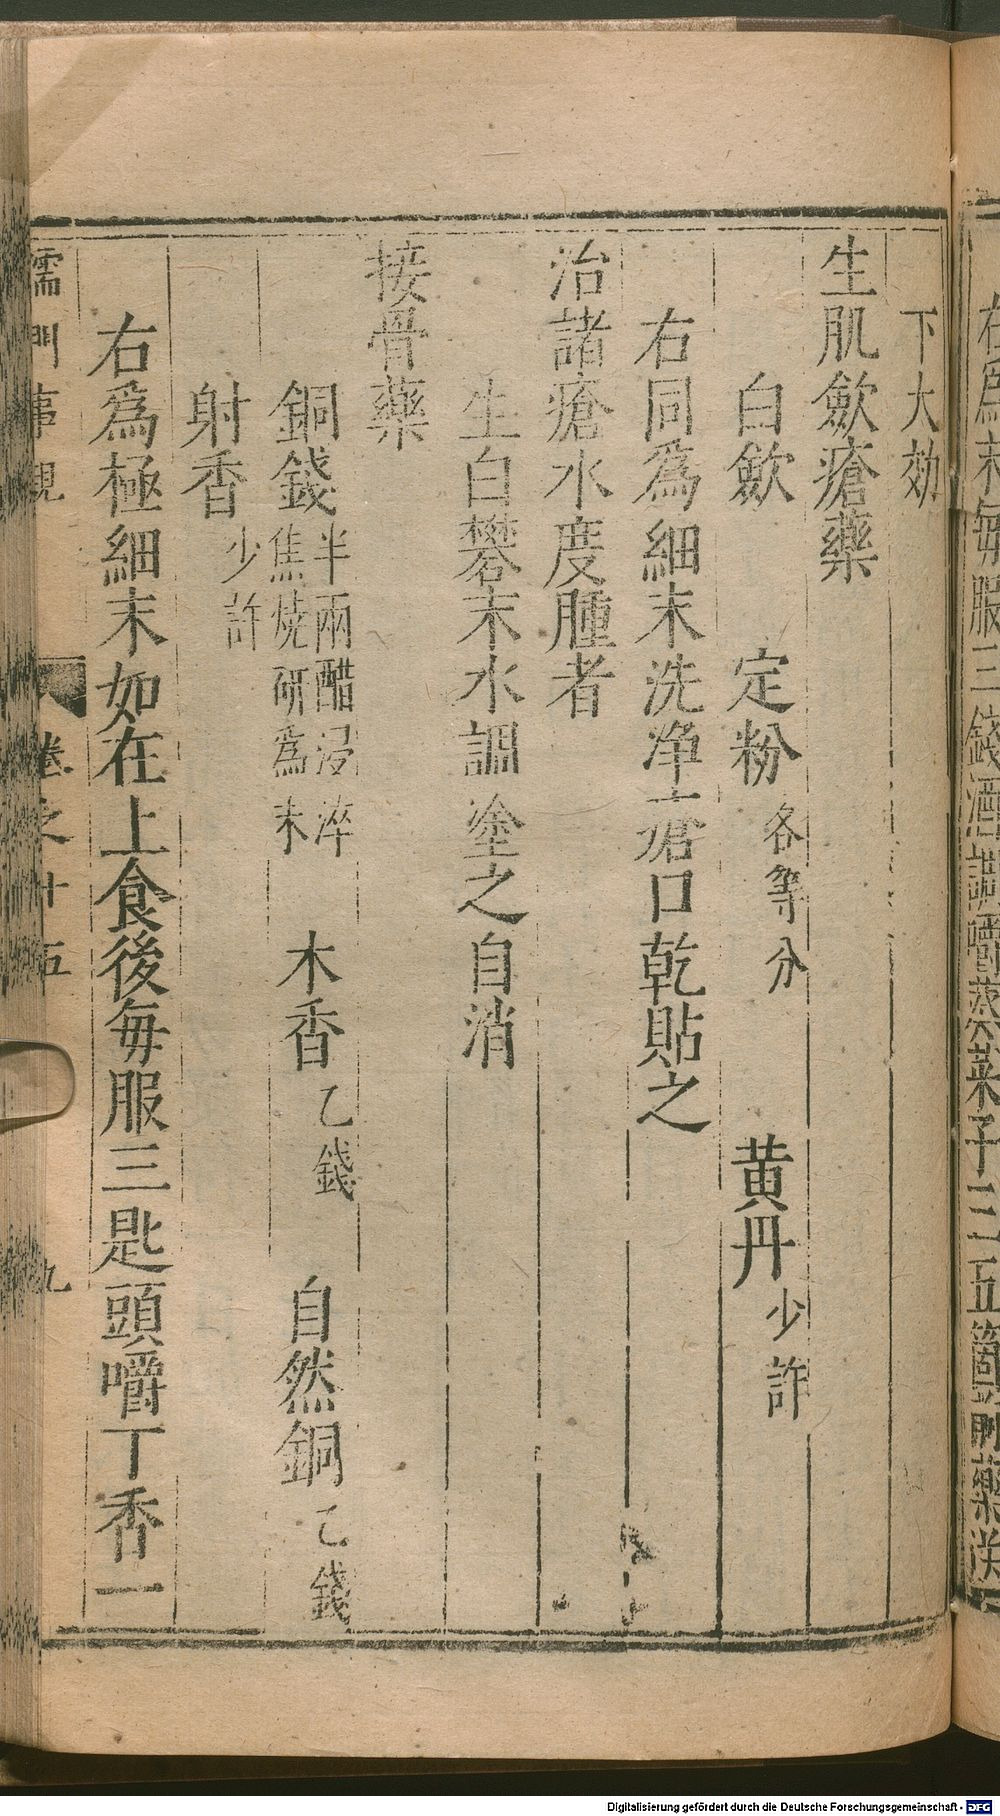 右爲末每服三錢酒調嚼蒸菜子三五箇
下大効
生肌歛瘡藥
白歛 定粉各等分 黄丹少許
右同爲細末洗净瘡口乾貼之
治諸瘡水度腫者
生白礬末水調塗之自消
接骨藥
銅錢半兩醋浸淬焦燒研爲末 木香乙錢 自然銅乙錢
射香少許
右爲極細末如在上食後每服三匙頭嚼丁香一
儒門事親 卷之十五 九
Digitalisierung gefördert durch die Deutsche Forschungsgemeinschaft - DFG